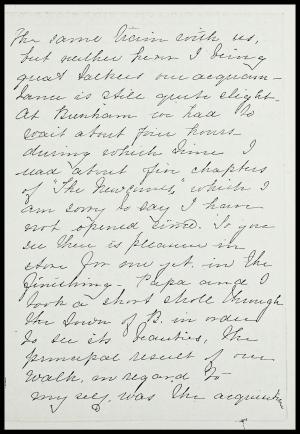 The same train with us,
but neither he nor I being
great talkers our acquain-
tance is still quite slight.
At Burnham we had to
wait about five hours
during which time I
read about five chapters
of "The Newcomes, which I
am sorry to say I have
not opened since. So you
see there is pleasure in
store for me yet. in the
finishing. Papa and I
took a short stroll through
the town of B. in order
to see its beauties, the
principal result of our
walk, in regard to
myself, was the acquisition